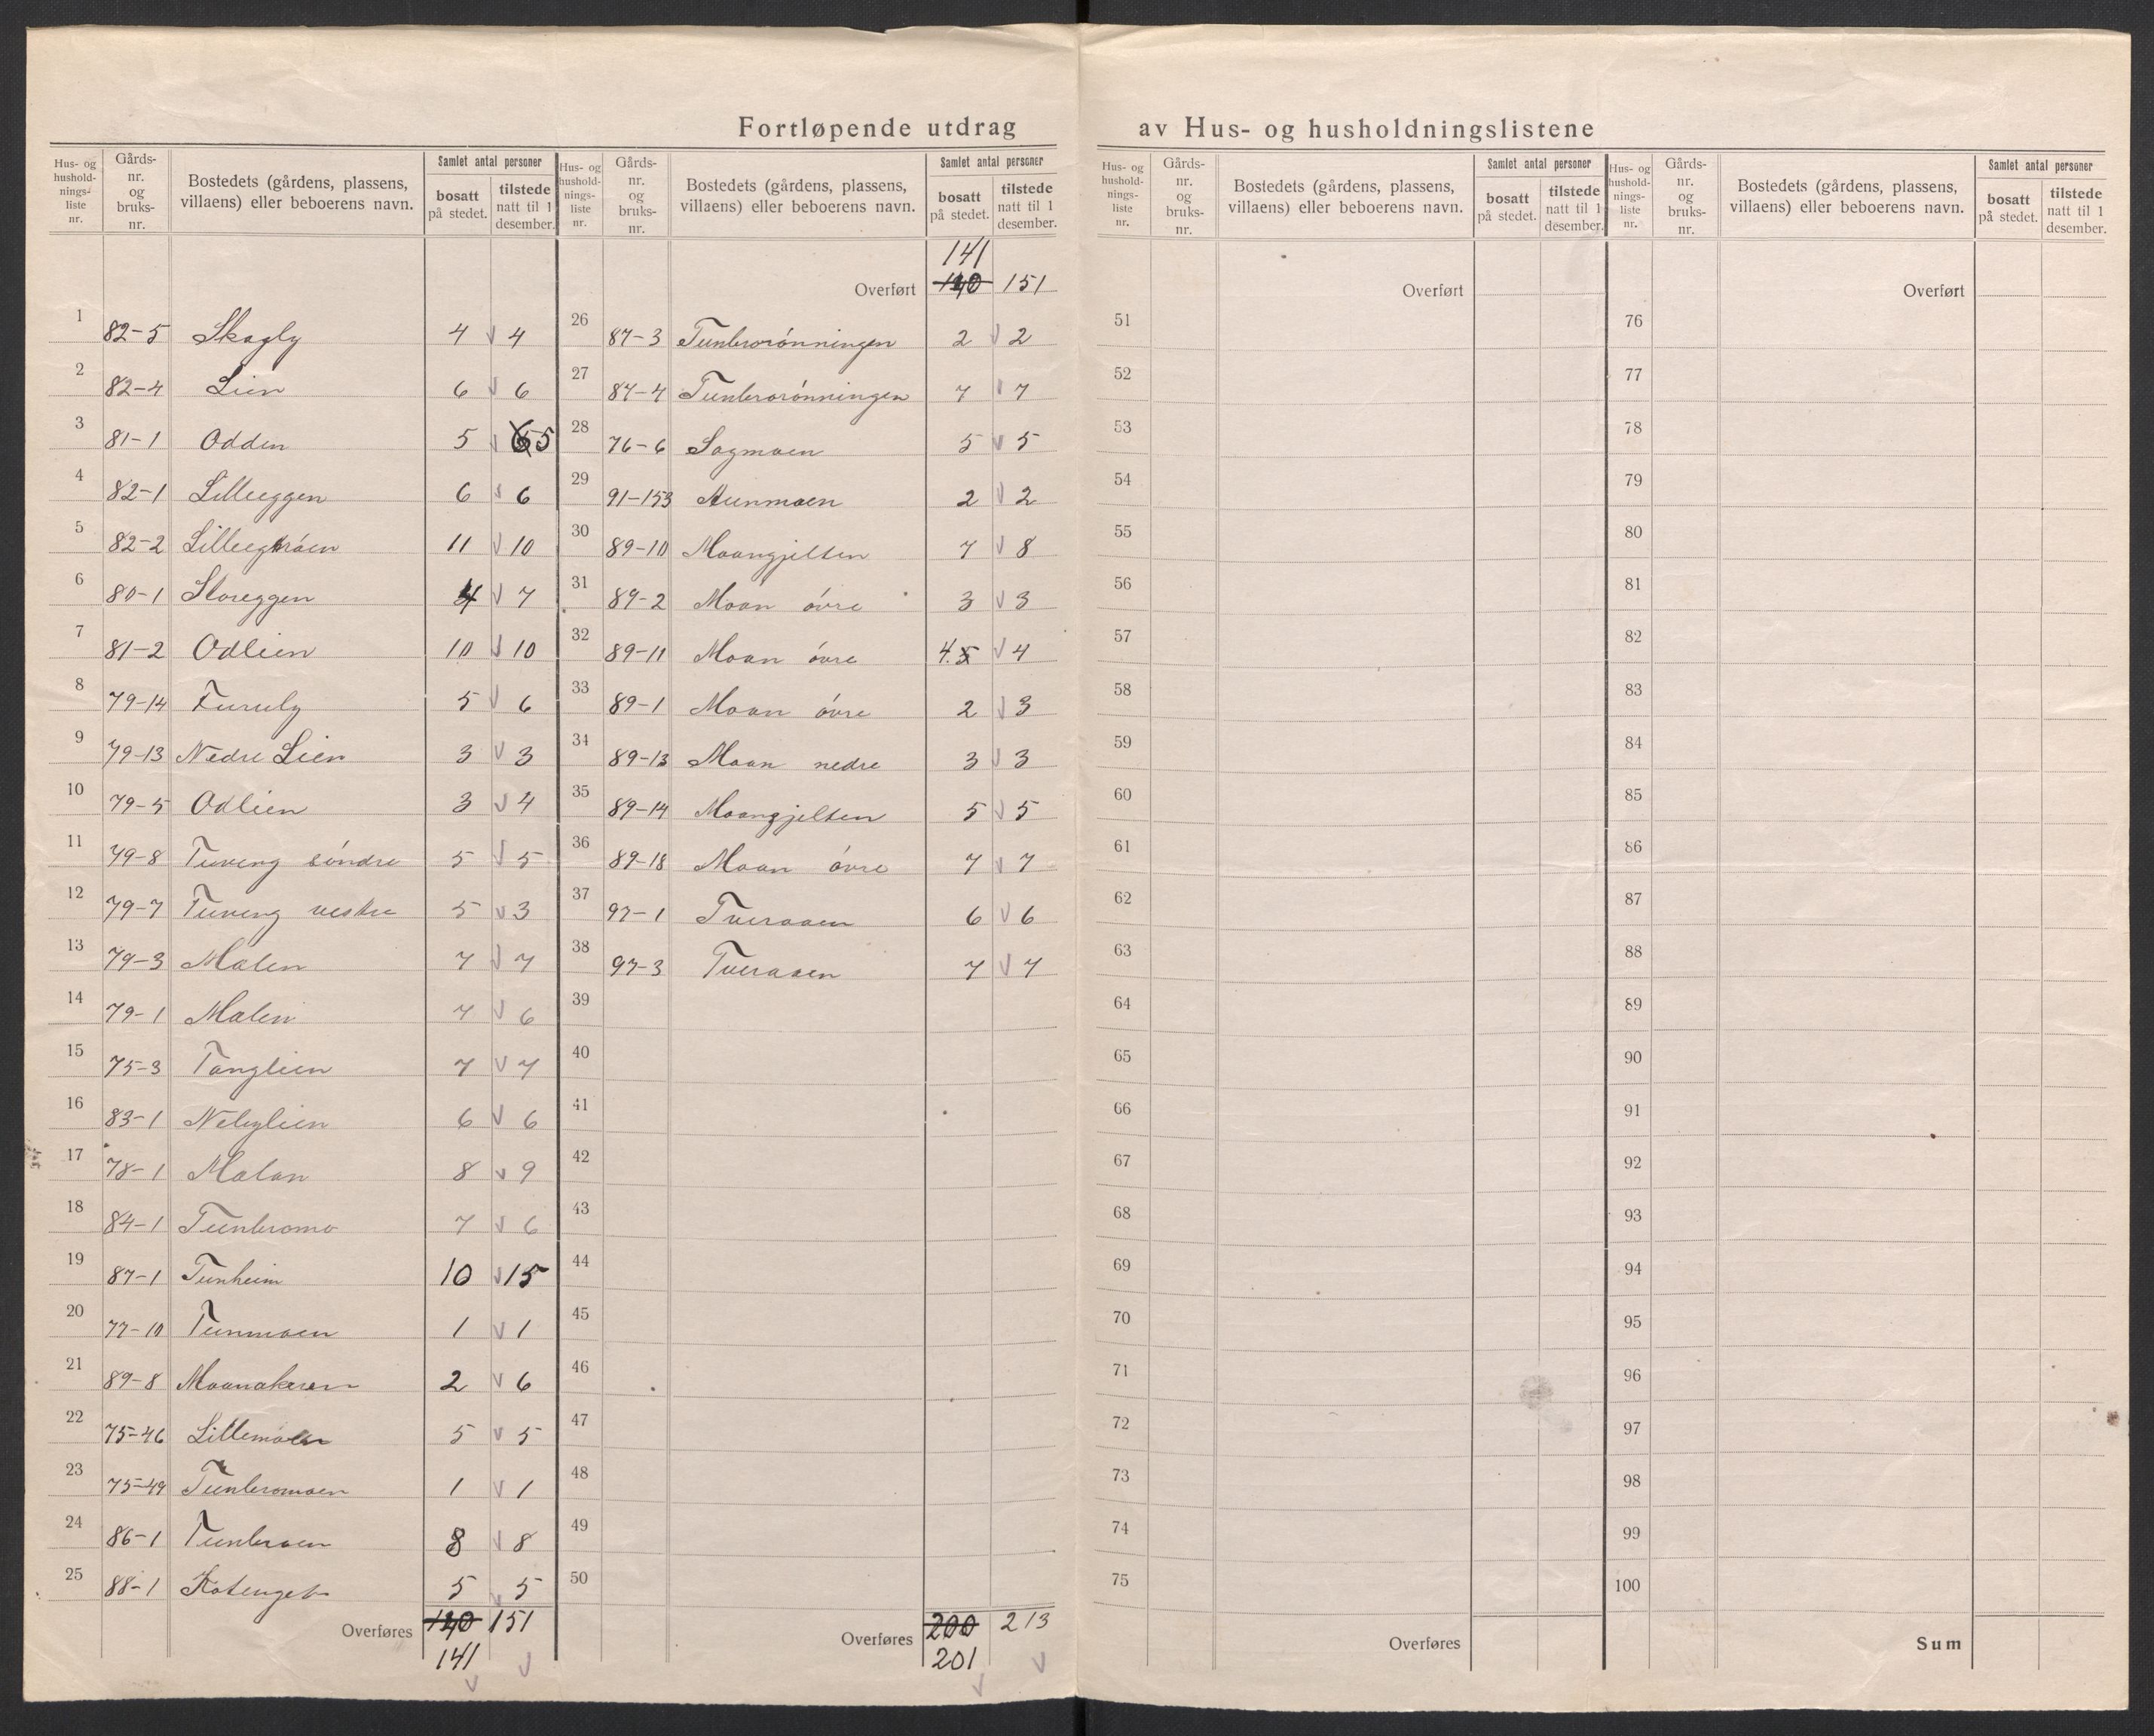 Fortløpende utdrag av Hus- og husholdningslistene
Hus- og husholdnings- liste nr. | Gårds- nr. og bruks- nr. | Bostedets (gårdens, plassens, villaens) eller beboerens navn. | Samlet antal personer | bosatt på stedet. | tilstede natt til 1 desember.
1 82-5 Skogly 4 v 4
2 82-4 Lien 6 v 6
3 81-1 Odden 5 v 6 5
4 82-1 Lilleeggen 6 v 6
5 82-2 11 v 10
6 80-1 Storeggen 4 v 7
7 81-2 Odlien 10 v 10
8 79-14 Furuly 5 v 6
9 79-13 Nedre Lien 3 v 3
10 79-5 Odlien 3 v 4
11 79-8 Tuveng söndre 5 v 5
12 79-7 Tuveng vestre 5 v 3
13 79-3 Malen 7 v 7
14 79-1 Malen 7 v 6
15 75-3 Tanglien 7 v 7
16 83-1 Nebylien 6 v 6
17 78-1 Malan 8 v 9
18 84-1 Tunbromo 7 v 6
19 87-1 Tunheim 10 v 15
20 77-10 Tunmoen 1 v 1
21 89-8 Moanakeren 2 v 6
22 75-46 Lillemoen 5 v 5
23 75-49 Tunbromoen 1 v 1
24 86-1 Tunbroen 8 v 8
25 88-1 5 v 5
Overføres 140 151
141
v v
Hus- og husholdnings- liste nr. | Gårds- nr. og bruks- nr. | Bostedets (gårdens, plassens, villaens) eller beboerens navn. | Samlet antal personer | bosatt på stedet. | tilstede natt til 1 desember.
141
Overført 140 151
26 87-3 Tunbrorónningen 2 v 2
27 87-4 Tunbrorónningen 7 v 7
28 76-6 Sagmoen 5 v 5
29 91-153 Aunmoen 2 v 2
30 89-10 Moangjelten 7 v 8
31 89-2 Moan óvre 3 v 3
32 89-11 Moan óvre 4. 5 v 4
33 89-1 Moan óvre 2 v 3
34 89-13 Moan nedre 3 v 3
35 89-14 Moangjelten 5 v 5
36 89-18 Moan óvre 7 v 7
37 97-1 Tveraaen 6 v 6
38 97-3 Tveraaen 7 v 7
39
40
41
42
43
44
45
46
47
48
49
50
Overføres 200 213
201
v v
Hus- og husholdnings- liste nr. | Gårds- nr. og bruks- nr. | Bostedets (gårdens, plassens, villaens) eller beboerens navn. | Samlet antal personer | bosatt på stedet. | tilstede natt til 1 desember.
Overført
51
52
53
54
55
56
57
58
59
60
61
62
63
64
65
66
67
68
69
70
71
72
73
74
75
Overføres
Hus- og husholdnings- liste nr. | Gårds- nr. og bruks- nr. | Bostedets (gårdens, plassens, villaens) eller beboerens navn. | Samlet antal personer | bosatt på stedet. | tilstede natt til 1 desember.
Overført
76
77
78
79
80
81
82
83
84
85
86
87
88
89
90
91
92
93
94
95
96
97
98
99
100
Sum